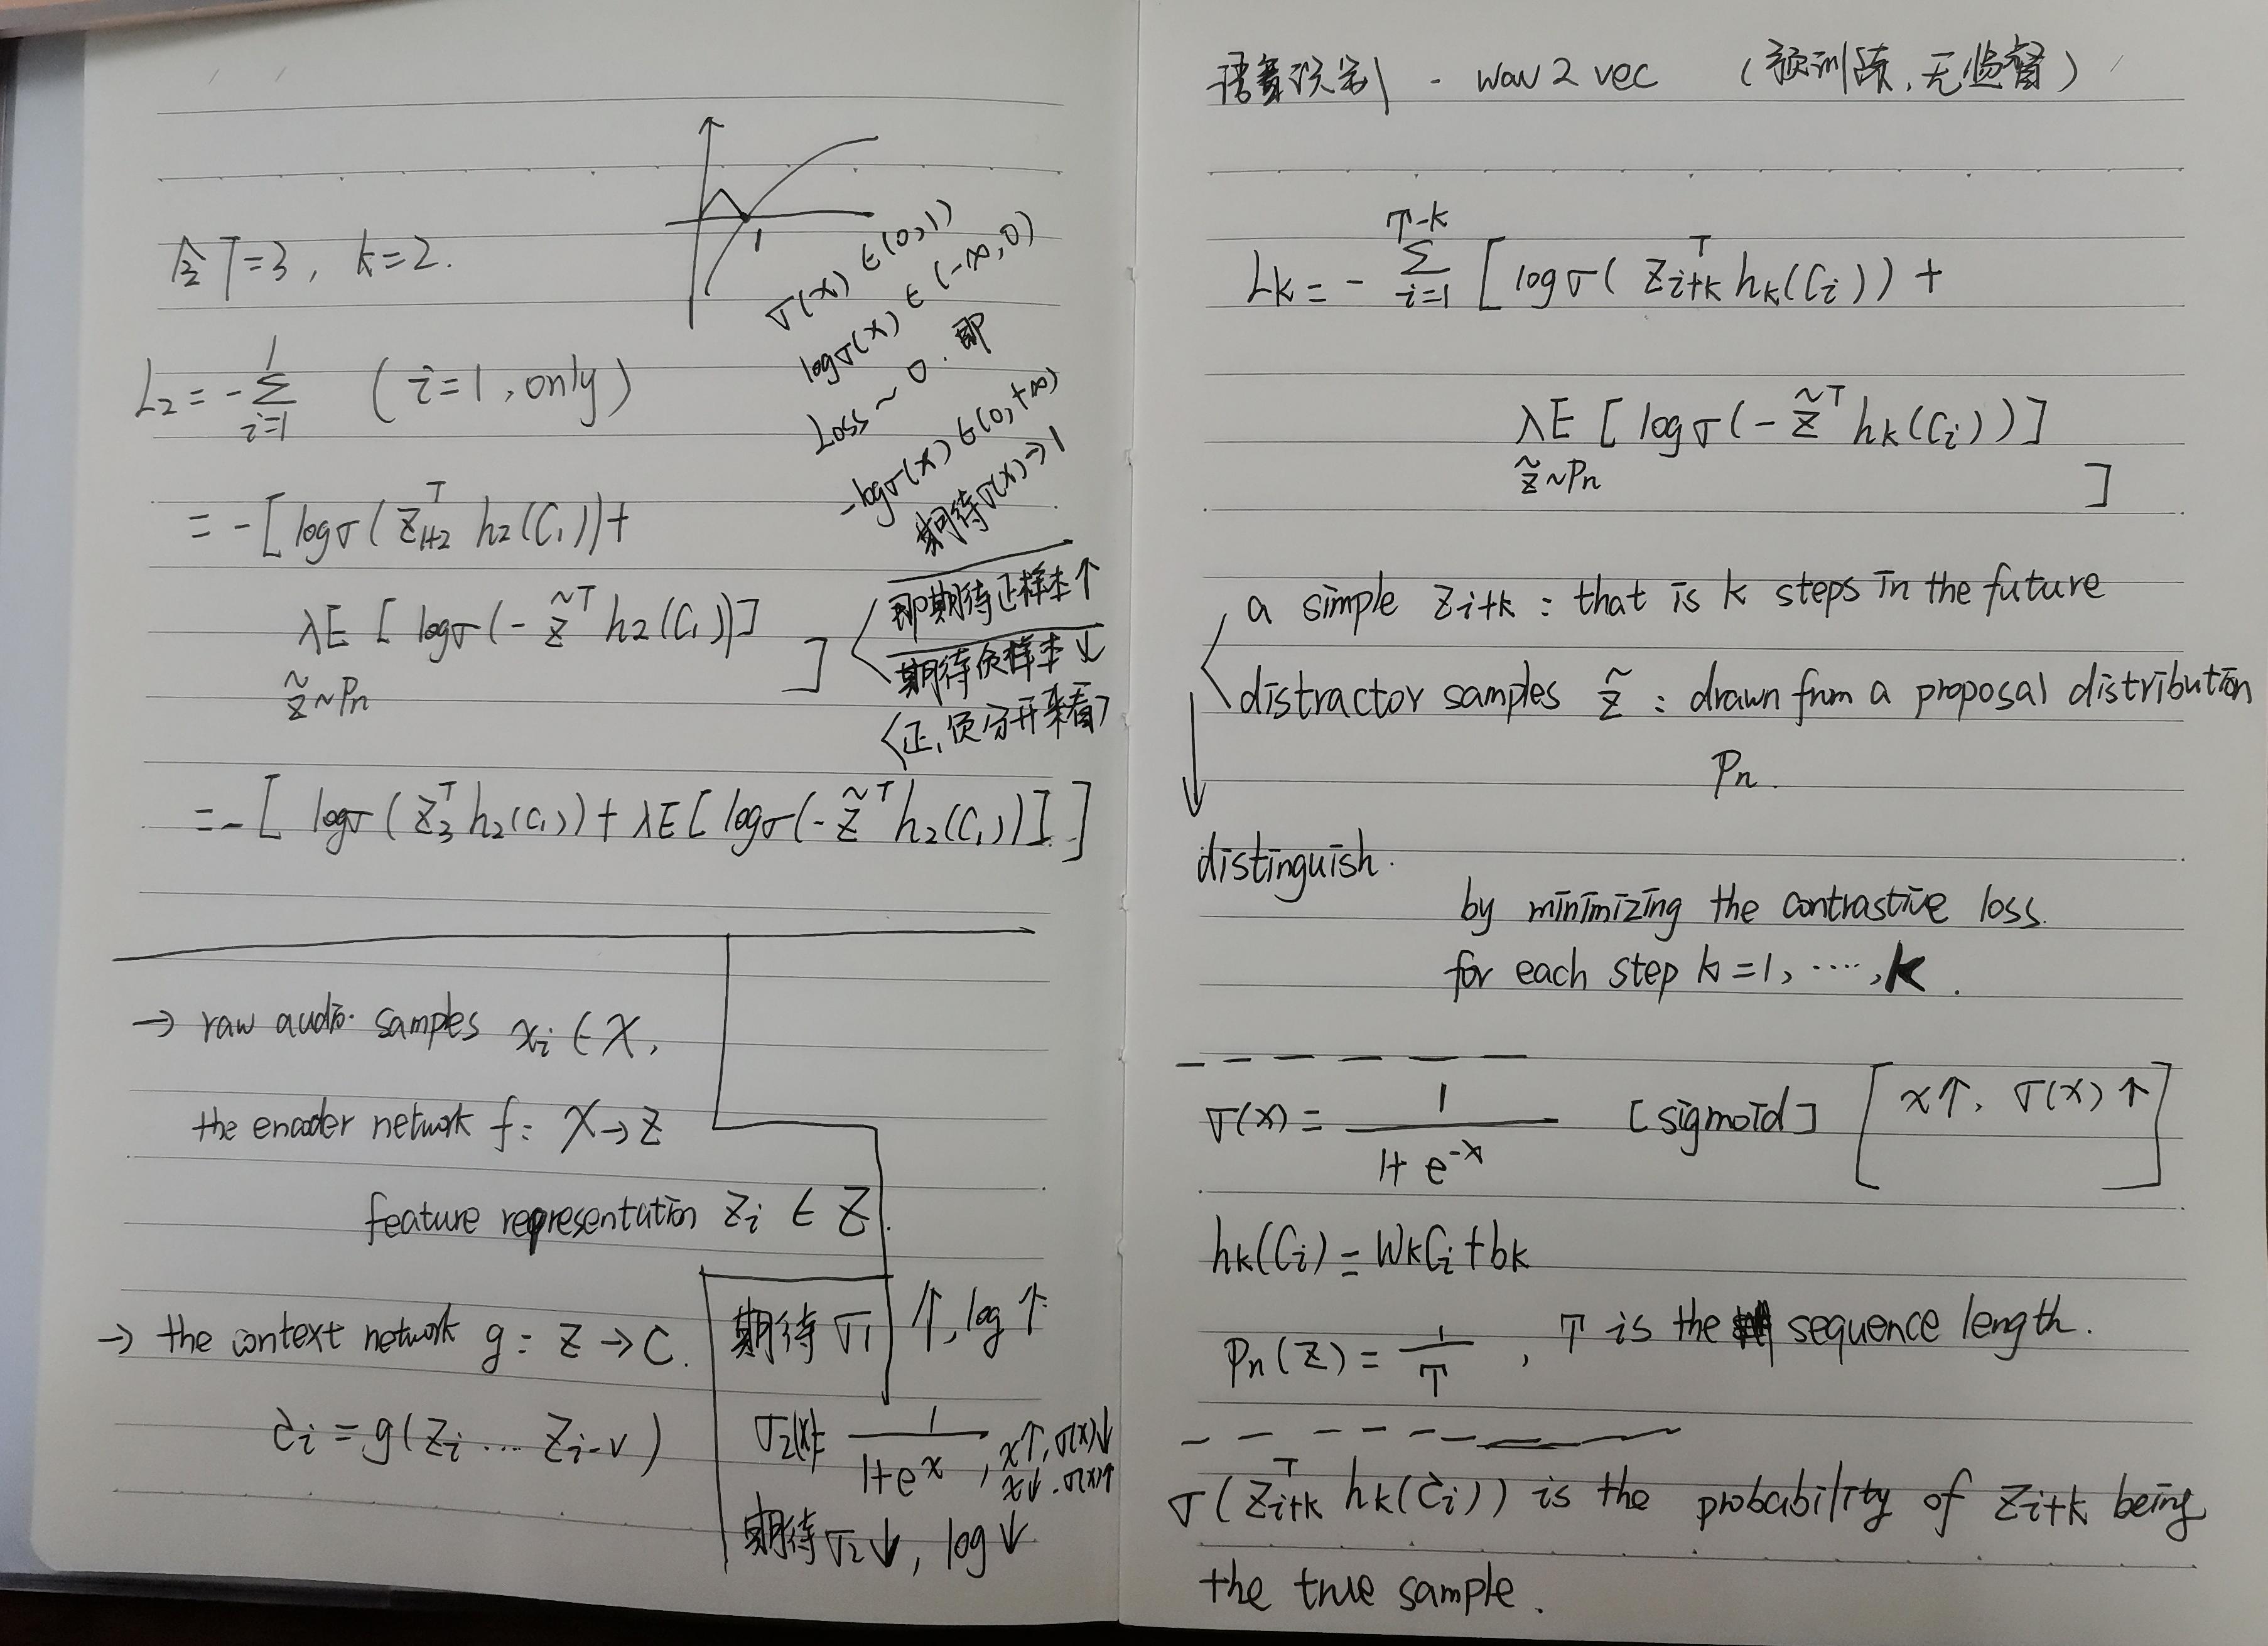 令T=3, k=2.
1
σ(x) ∈(0,1)
logσ(x) ∈ (-∞,0)
Loss ~ 0. 即
-logσ(x) ∈(0,+∞)
期待σ(x)→1
L₂ = -∑_{i=1}^{1} (i=1, only)
= -[logσ(Z_{1+2}^T h₂(C₁))+
λE [logσ(-z̃^T h₂(C₁)]
z̃~Pn
]
即期待正样本↑
期待负样本↓
(正,负分开来看)
=-[ logσ(Z₃^T h₂(C₁)) + λE[logσ(-z̃^T h₂(C₁)]. ]
→ raw audio samples xi ∈ X,
the encoder network f: X→Z
feature representation Zi ∈ Z.
→ the context network g: Z → C.
Ci = g(Zi .... Zi-v)
期待 σ₁ ↑, log ↑.
σ₂(x)= 1/(1+e^x), x↑, σ(x)↓
x↓. σ(x)↑
期待 σ₂ ↓, log ↓
语音识别 - wav2vec (预训练,无监督)
Lk = - ∑_{i=1}^{T-k} [logσ(Z_{i+k}^T hk(Ci)) +
λE [logσ(-z̃^T hk(Ci))]
z̃~Pn ]
a simple Zi+k : that is k steps in the future
distractor samples z̃ : drawn from a proposal distribution
Pn.
distinguish.
by minimizing the contrastive loss.
for each step k=1, ...., K.
σ(x) = 1/(1+e^{-x}) [sigmoid] [x↑, σ(x)↑]
hk(Ci) = WkCi+bk
Pn(Z) = 1/T, T is the sequence length.
σ(Z_{i+k}^T hk(Ci)) is the probability of Zi+k being
the true sample.